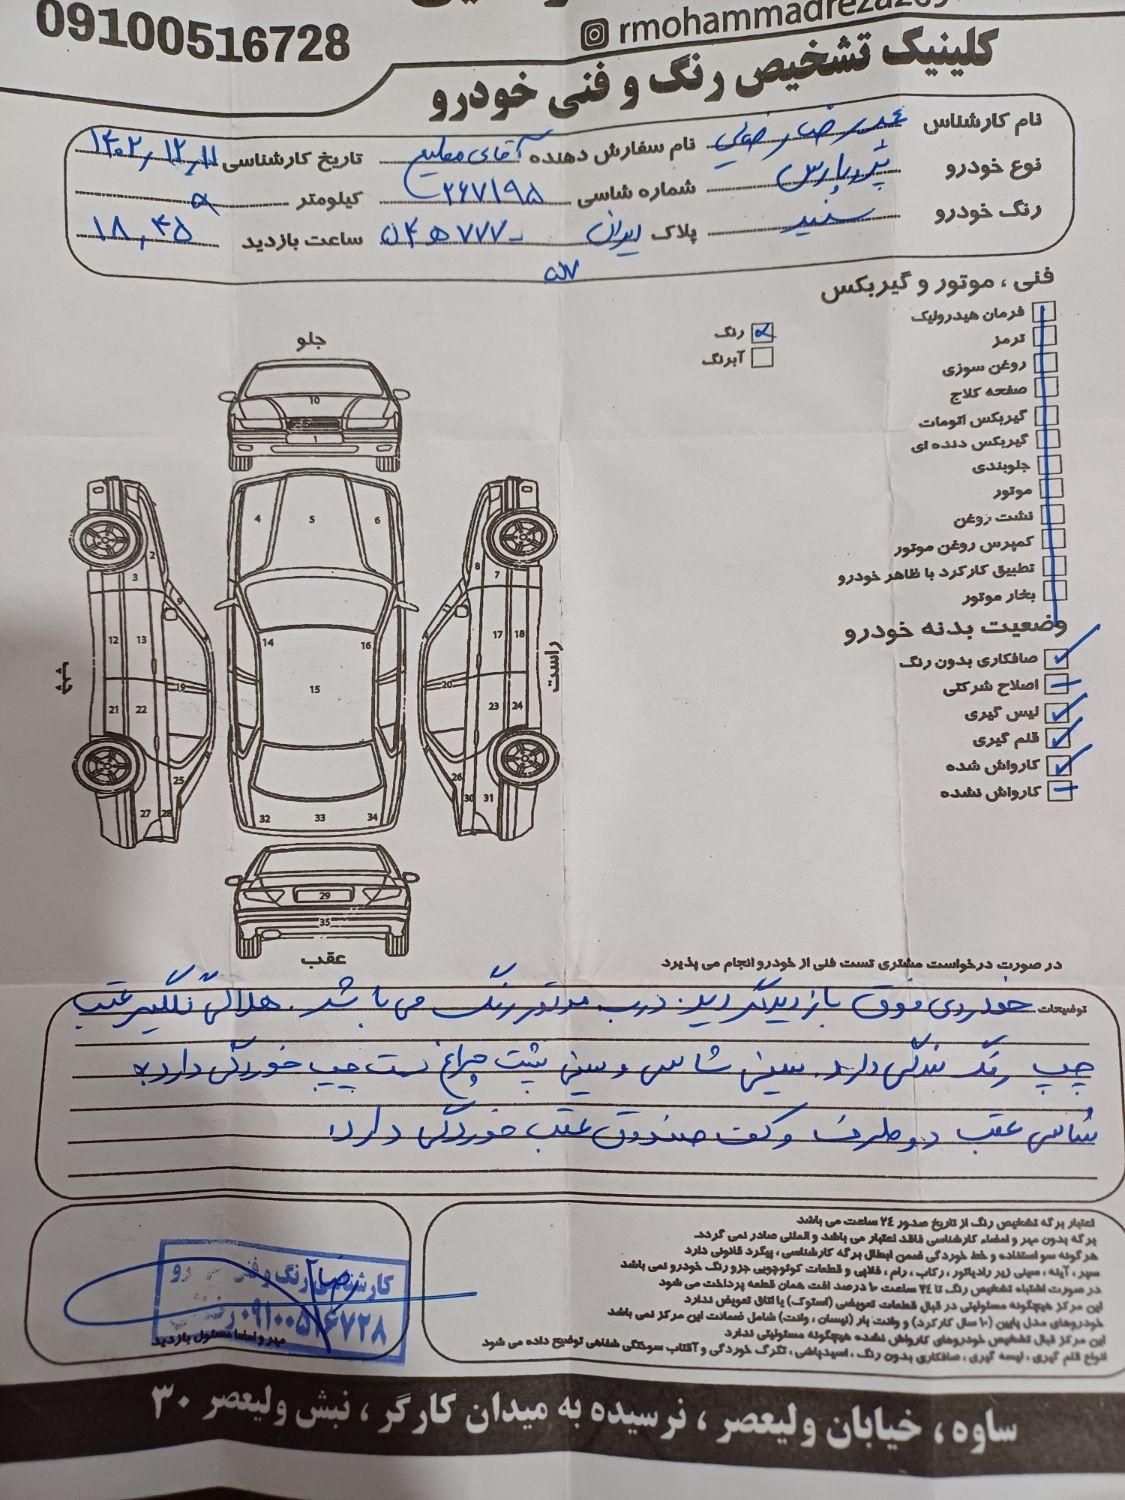 09100516728
rmohammadreza
کلینیک تشخیص رنگ و فنی خودرو
نام کارشناس
نام سفارش دهنده آقای
تاریخ کارشناسی ۱۴۰۲,۱۲,۱۱
نوع خودرو پژو پارس
شماره شاسی ۲۶۷۱۹۵
کیلومتر
رنگ خودرو سفید
پلاک ایران ۷۷۷
ساعت بازدید ۱۸,۴۵
فنی ، موتور و گیربکس
فرمان هیدرولیک
ترمز
روغن سوزی
صفحه کلاج
گیربکس اتومات
گیربکس دنده ای
جلوبندی
موتور
نشت روغن
کمپرس روغن موتور
تطبیق کارکرد با ظاهر خودرو
بخار موتور
رنگ
آبرنگ
وضعیت بدنه خودرو
صافکاری بدون رنگ
اصلاح شرکتی
لیس گیری
قلم گیری
کارواش شده
کارواش نشده
جلو
10
1
4 5 6
2
3
8
7
12 13
14
16
17 18
15
چپ
راست
19
20
21 22
23 24
25
26
27 28
30 31
32 33 34
29
35
عقب
در صورت درخواست مشتری تست فنی از خودرو انجام می پذیرد
توضیحات: خودروی فوق بازدید گردید. درب موتور رنگ می باشد. هلالی گلگیر عقب
چپ رنگ شدگی دارد. سینی شاسی و سینی پشت چراغ سمت چپ خوردگی دارد.
شاسی عقب دو طرف و کف صندوق عقب خوردگی دارد.
اعتبار برگه تشخیص رنگ از تاریخ صدور ۲۴ ساعت می باشد
برگه بدون مهر و امضاء کارشناسی فاقد اعتبار می باشد و المثنی صادر نمی گردد.
هرگونه سو استفاده و خط خوردگی ضمن ابطال برگه کارشناسی ، پیگرد قانونی دارد
سپر ، آینه ، سینی زیر رادیاتور ، رکاب ، رام ، فلاپی و قطعات کوئوچویی جزو رنگ خودرو نمی باشد
در صورت اشتباه تشخیص رنگ تا ۲۴ ساعت ۱۰ درصد افت همان قطعه پرداخت می شود
این مرکز هیچگونه مسئولیتی در قبال قطعات تعویضی (استوک) یا اتاق تعویض ندارد
خودروهای مدل پایین (۱۰ سال کارکرد) و وانت بار (نیسان ، وانت) شامل ضمانت این مرکز نمی باشد
این مرکز قبال تشخیص خودروهای کارواش نشده هیچگونه مسئولیتی ندارد
انواع قلم گیری ، لیسه گیری ، صافکاری بدون رنگ ، اسیدپاشی ، تگرگ خوردگی و آفتاب سوختگی شفاهی توضیح داده می شود
رنگ و فنی
۰۹۱۰۰۵۱۶۷۲۸
مهر و امضا مسئول بازدید
ساوه ، خیابان ولیعصر ، نرسیده به میدان کارگر ، نبش ولیعصر ۳۰